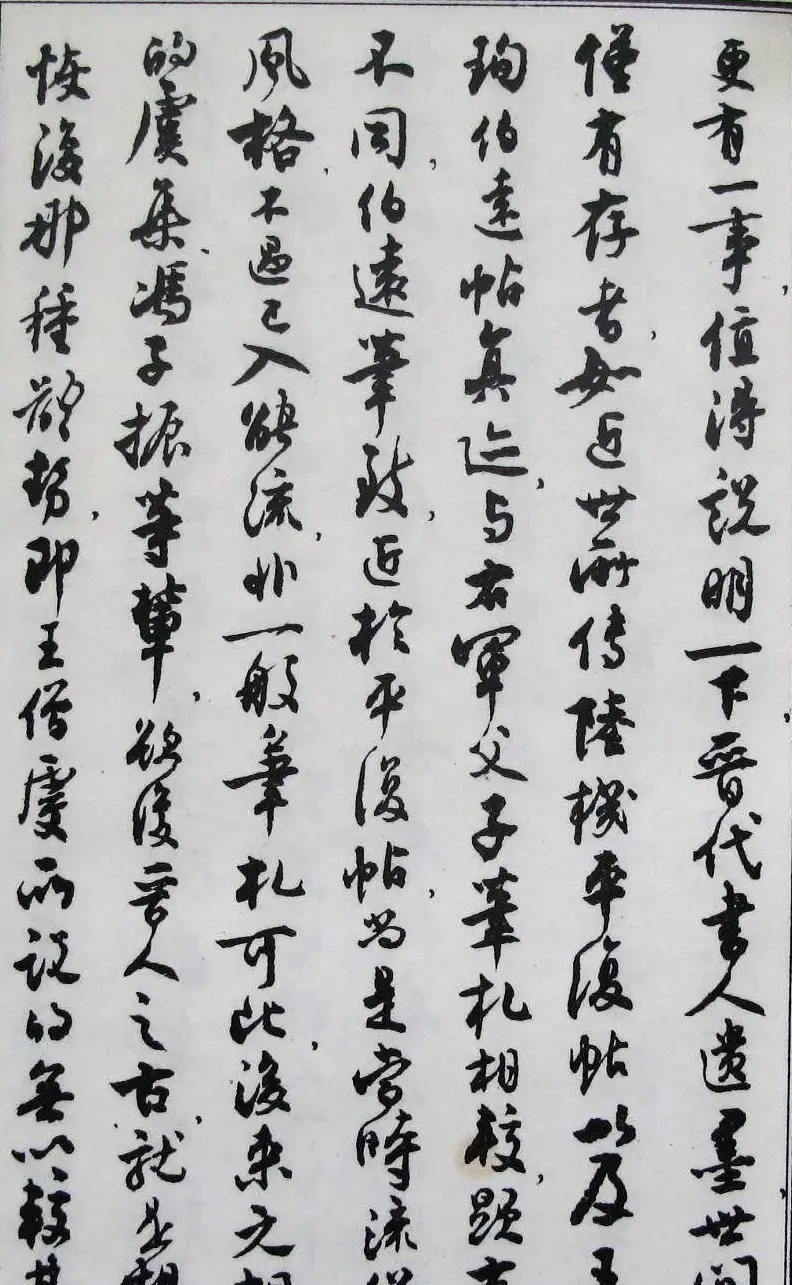 更有一事，值得說明一下，晉代書人遺墨，世間
僅有存者，如近世所傳陸機平復帖以及王
珣伯遠帖真迹，与右軍父子筆札相較，顯有
不同，伯遠筆致，近於平復帖，尚是當時流俗
風格，不過已入能流，非一般筆札可比，後來元朝
的虞集、馮子振等輩，欲復晉人之古，就是想
恢復那種體勢，即王僧虔所說的無以較其